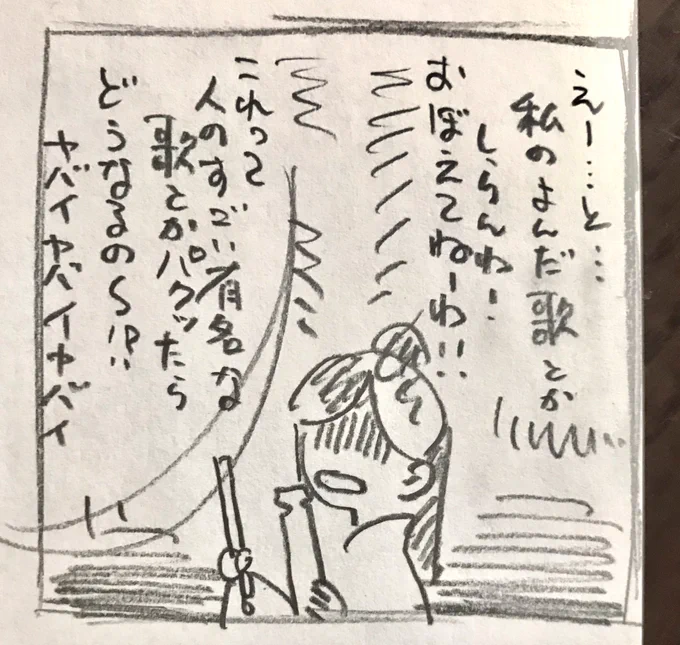 えー…と…
私のよんだ歌とか
しらんわ!
おぼえてねーわ!!
これって
人のすごい有名な
歌とかパクッたら
どうなるの〜!?
ヤバイヤバイヤバイ